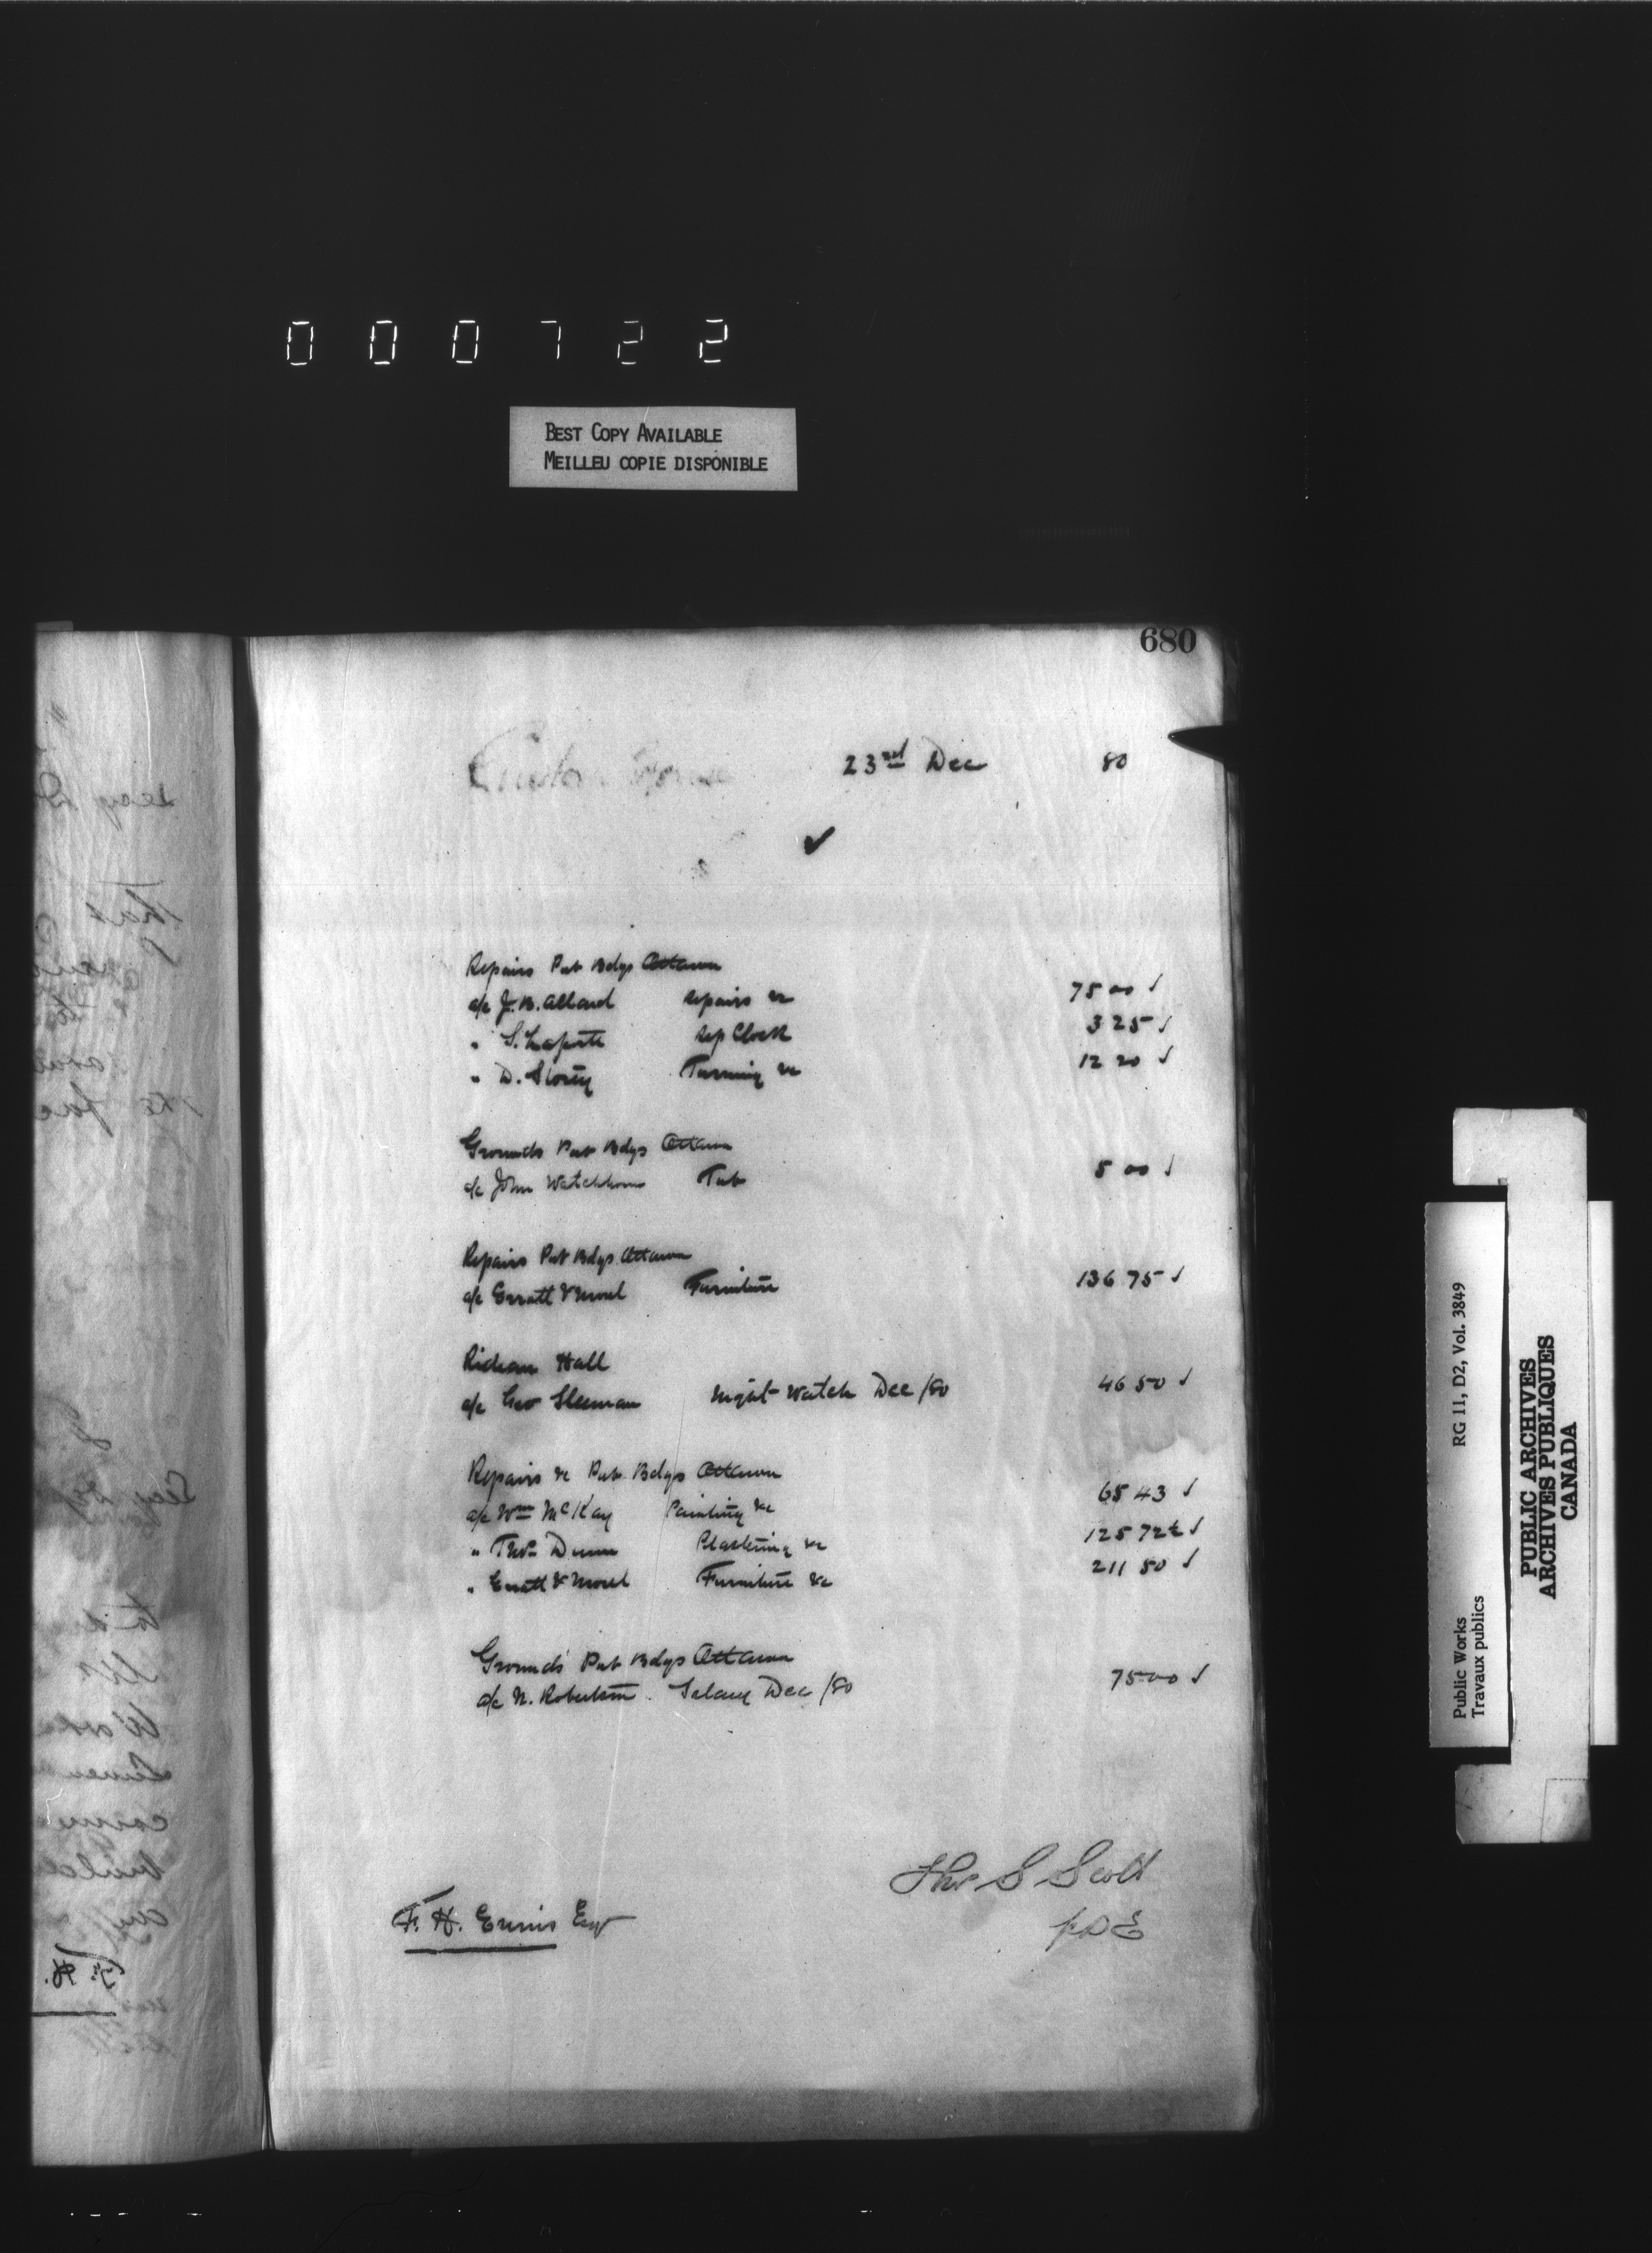 000722
BEST COPY AVAILABLE
MEILLEU COPIE DISPONIBLE
680
Custom House 23rd Dec 80
✓
Repairs Pub Bdgs Ottawa
a/c J.B. Allard repairs &c 75 00 ✓
" S. Laporte rep Clock 3 25 ✓
" D. Storey Turning &c 12 20 ✓
Grounds Pub Bdgs Ottawa
a/c John Tub 5 00 ✓
Repairs Pub Bdgs Ottawa
a/c Erratt & Morel Furniture 136 75 ✓
Rideau Hall
a/c Geo Sleeman Night Watch Dec /80 46 50 ✓
Repairs &c Pub Bdgs Ottawa
a/c Wm McKay Painting &c 65 43 ✓
" Thos Dunn Plastering &c 125 72½ ✓
" Erratt & Morel Furniture &c 211 50 ✓
Grounds Pub Bdgs Ottawa
a/c N. Robertson Salary Dec /80 75 00 ✓
Thos S Scott
F. H. Ennis Esqr
Public Works
Travaux publics
RG 11, D2, Vol. 3849
PUBLIC ARCHIVES
ARCHIVES PUBLIQUES
CANADA